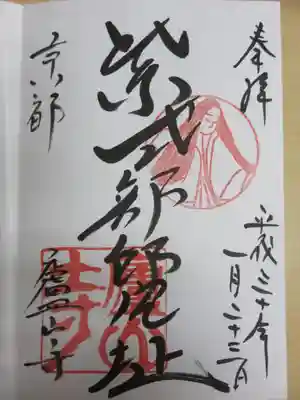 奉拝
平成三十年
一月二十二日
紫式部邸宅址
京都
廬山寺